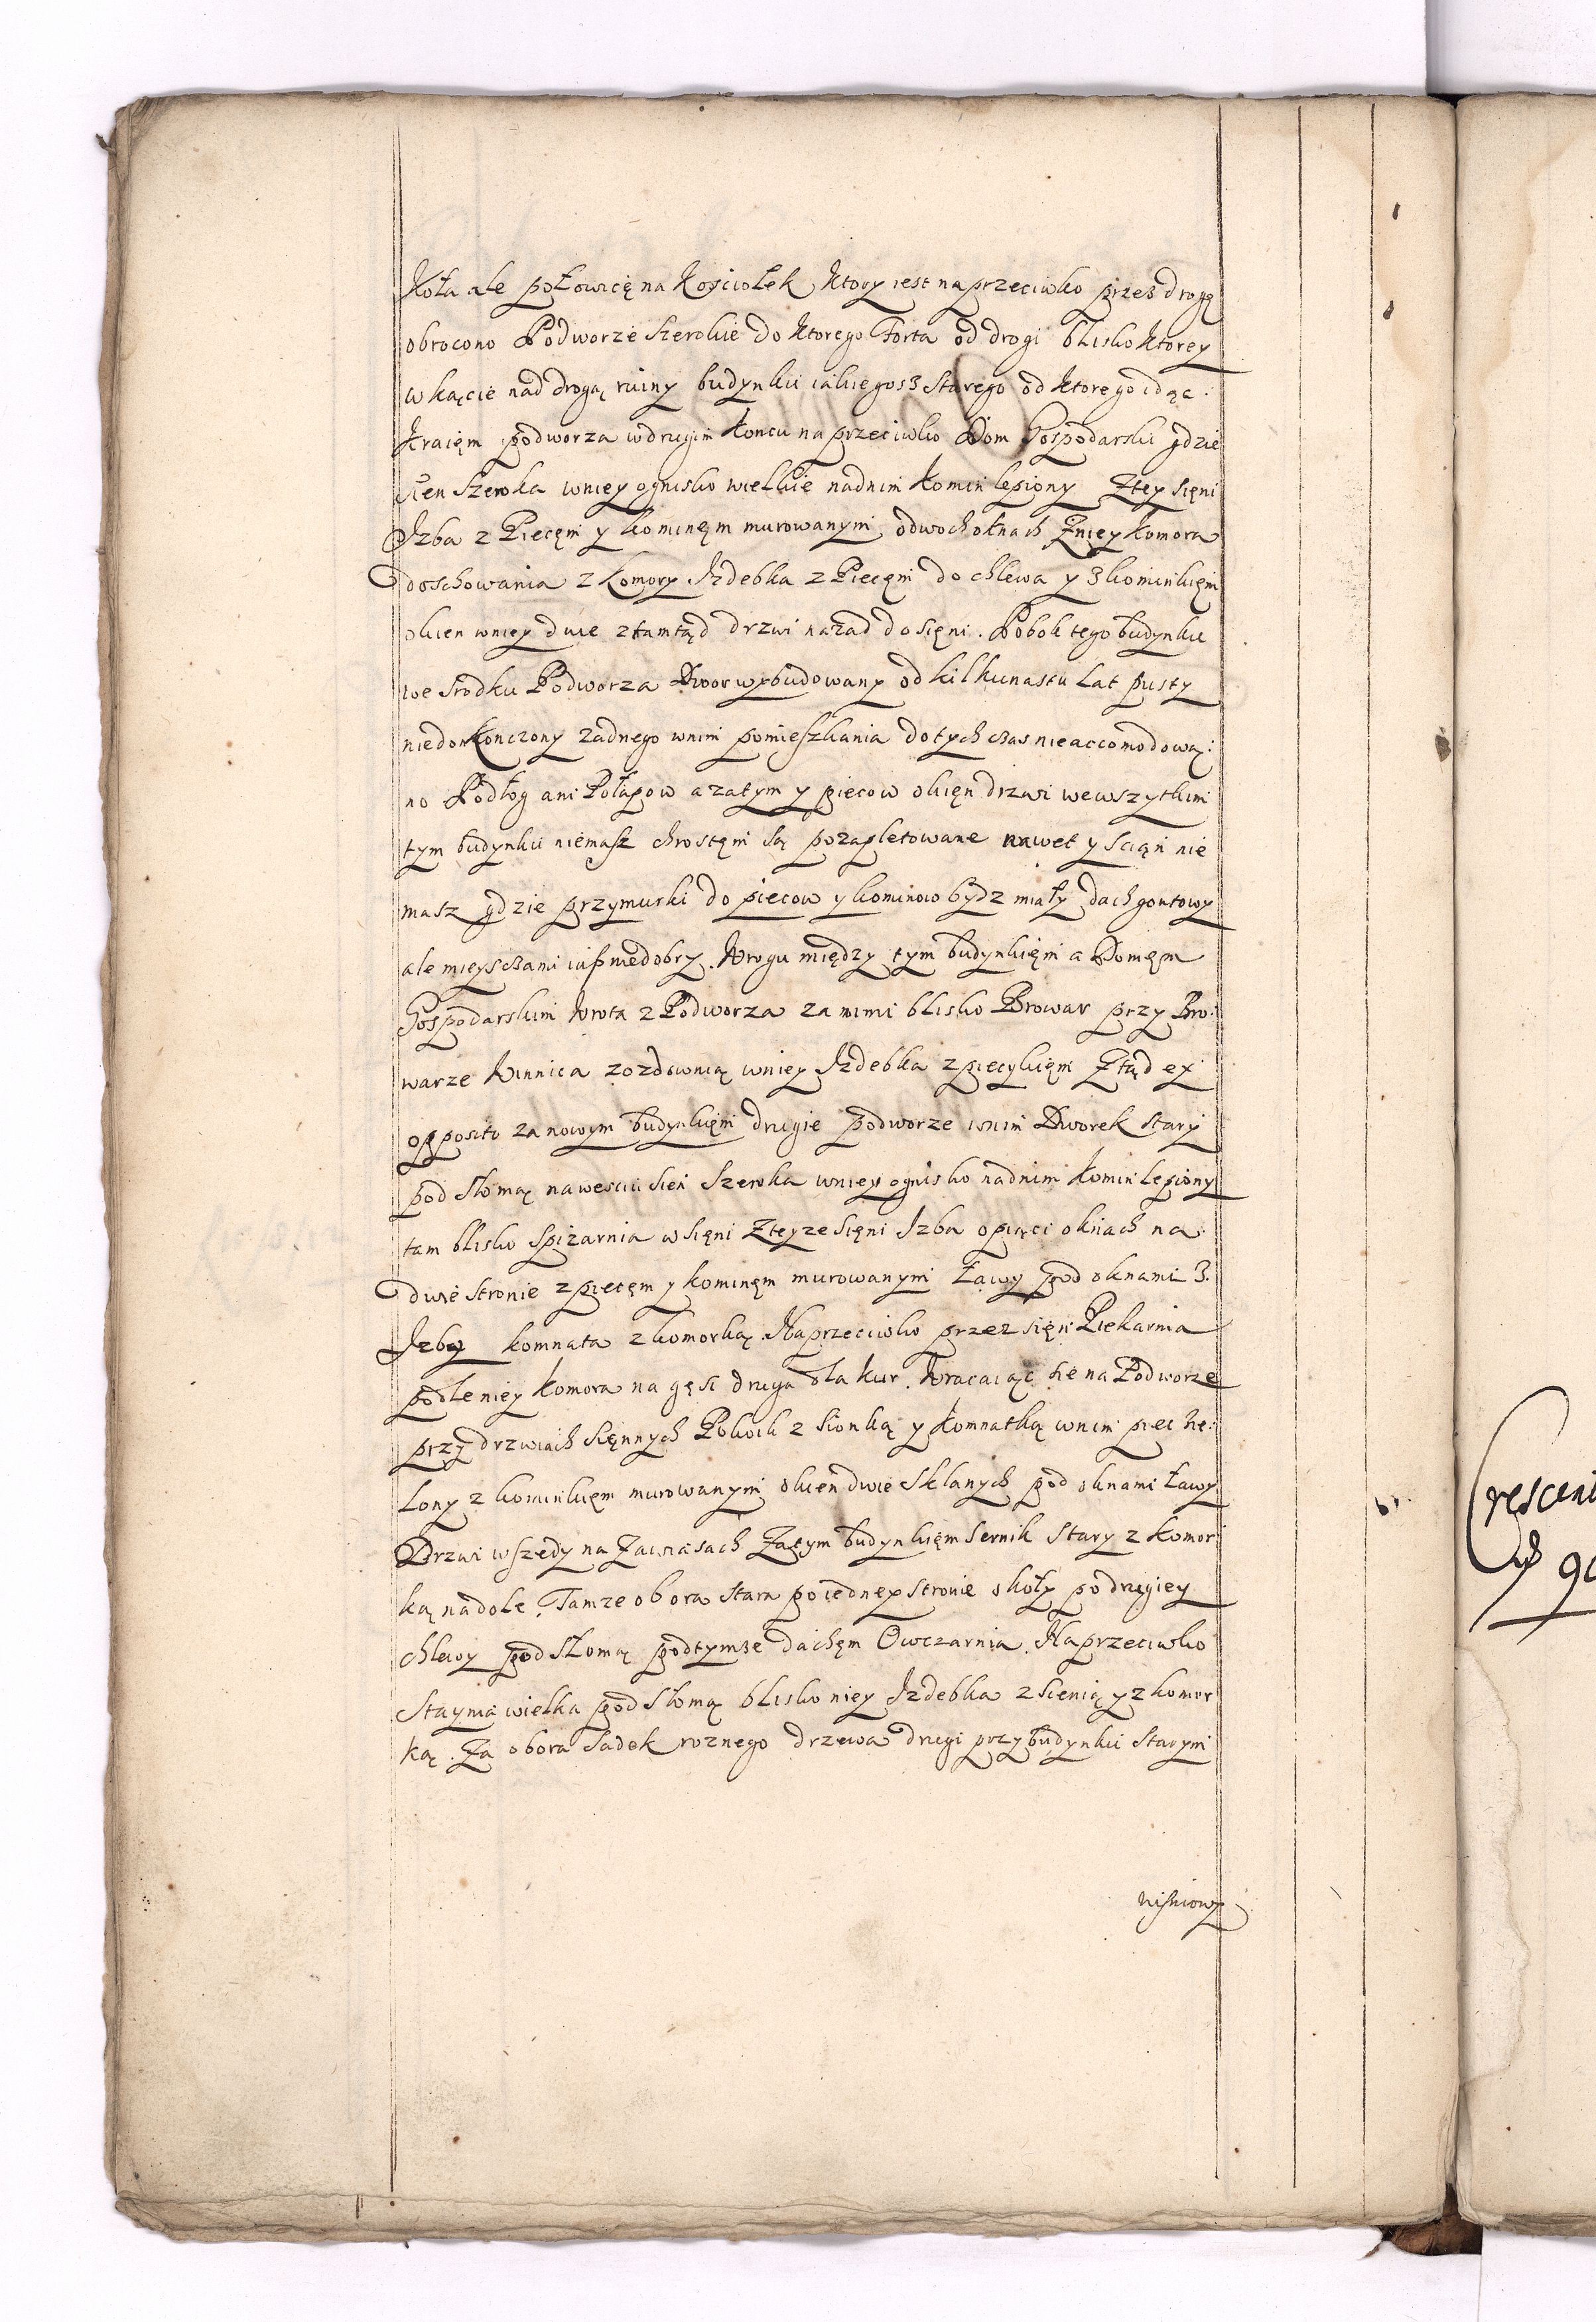 Koła ale połowicę na Kościołek Ktory iest naprzeciwko przez drogę
obrocono Podworze szerokie do Ktorego Forta od drogi blisko Ktorey
w kącie nad drogą ruiny budynku iakiegosz starego od Ktorego idąc
Kraięm podworza w drugim Koncu na przeciwko Dom Gospodarski gdzie
sien szeroka w niey ognisko wielkie nad nim Komin lepiony Z tey sięni
Izba z Piecęm y kominęm murowanym o dwoch oknach Z niey Komora
do schowania z Komory Izdebka z Piecęm do chlewa y z kominkięm
okien w niey dwie ztamtąd drzwi nazad do sięni. Pobok tego budynku
we srodku Podworza Dwor wybudowany od kilkunastu lat pusty
niedokonczony zadnego w nim pomieszkania do tych czas nieaccomodowa:
no Podłog ani Połapow a zatym y piecow okięn drzwi we wszytkim
tym budynku niemasz chrostęm są pozapletowane nawet y scięn nie
masz gdzie przymurki do piecow y kominow bydz miały dach gontowy
ale mieyscami iusz niedobry. W rogu między tym budynkięm a Domęm
Gospodarskim Wrota z Podworza za nimi blisko Browar przy Bro:
warze Winnica z ozdownią w niey Izdebka z piecykięm Ztąd ex
opposito za nowym budynkięm drugie podworze w nim Dworek stary
pod słomą na wesciu sien szeroka w niey ognisko nad nim Komin lepiony
tam blisko spizarnia w sięni Z teyze sięni Izba o pięci oknach na
dwie stronie z piecęm y kominęm murowanym ławy pod oknami Z
Izby komnata z komorką. Naprzeciwko przez sięn Piekarnia
podle niey Komora na gęsi druga dla kur. Wracaiąc się na Podworze
przy drzwiach sięnnych Pokoik z sionką y Komnatką w nim piec zie:
lony z kominkięm murowanym okien dwie sklanych pod oknami ławy
Drzwi wszędy na Zawiasach Za tym budynkięm sernik stary z komor
ką na dole. Tamze obora stara po iedney stronie s koły po drugiey
chlewy pod słomą pod tymze dachęm Owczarnia. Naprzeciwko
Staynia wielka pod słomą blisko niey Izdebka z sienią y z komor
ką. Za obora sadek roznego drzewa drugi przy budynku starym
wiśniowy